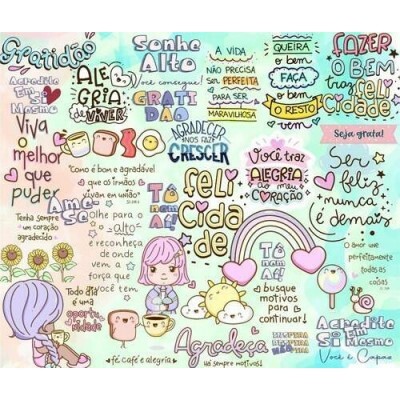 Gratidão
Acredite
Em Si
Mesmo
Viva o
melhor
que
puder
Tenha sempre
um coração
agradecido
ALE
GRIA
de
VIVER!
Sonhe
Alto
Você consegue!
GRATI
DÃO
A VIDA
NÃO PRECISA
ser PERFEITA
PARA SER
MARAVILHOSA
QUEIRA
o bem
FAÇA
o bem
O RESTO
vem
FAZER
O BEM
traz
feli
cidade
Seja grata!
AGRADECER
nos faz
CRESCER
"Como é bom e agradável
que os irmãos
vivam em união"
Ame-
Se
Olhe para o
alto
e reconheça
de onde
vem a
força que
você tem
Tô
nem
Aí!
feli
Cida
de
Você traz
ALEGRIA
ao meu
CORAÇÃO
Ser
feliz
nunca
é demais
O amor une
perfeitamente
todas as
coisas
Tô
nem
Aí!
busque
motivos
para
continuar!
Todo dia
é uma
oportu
nidade
fé café e alegria
Agradeça
Há sempre motivos!
Acredite
Em Si
Mesmo
Você é Capaz